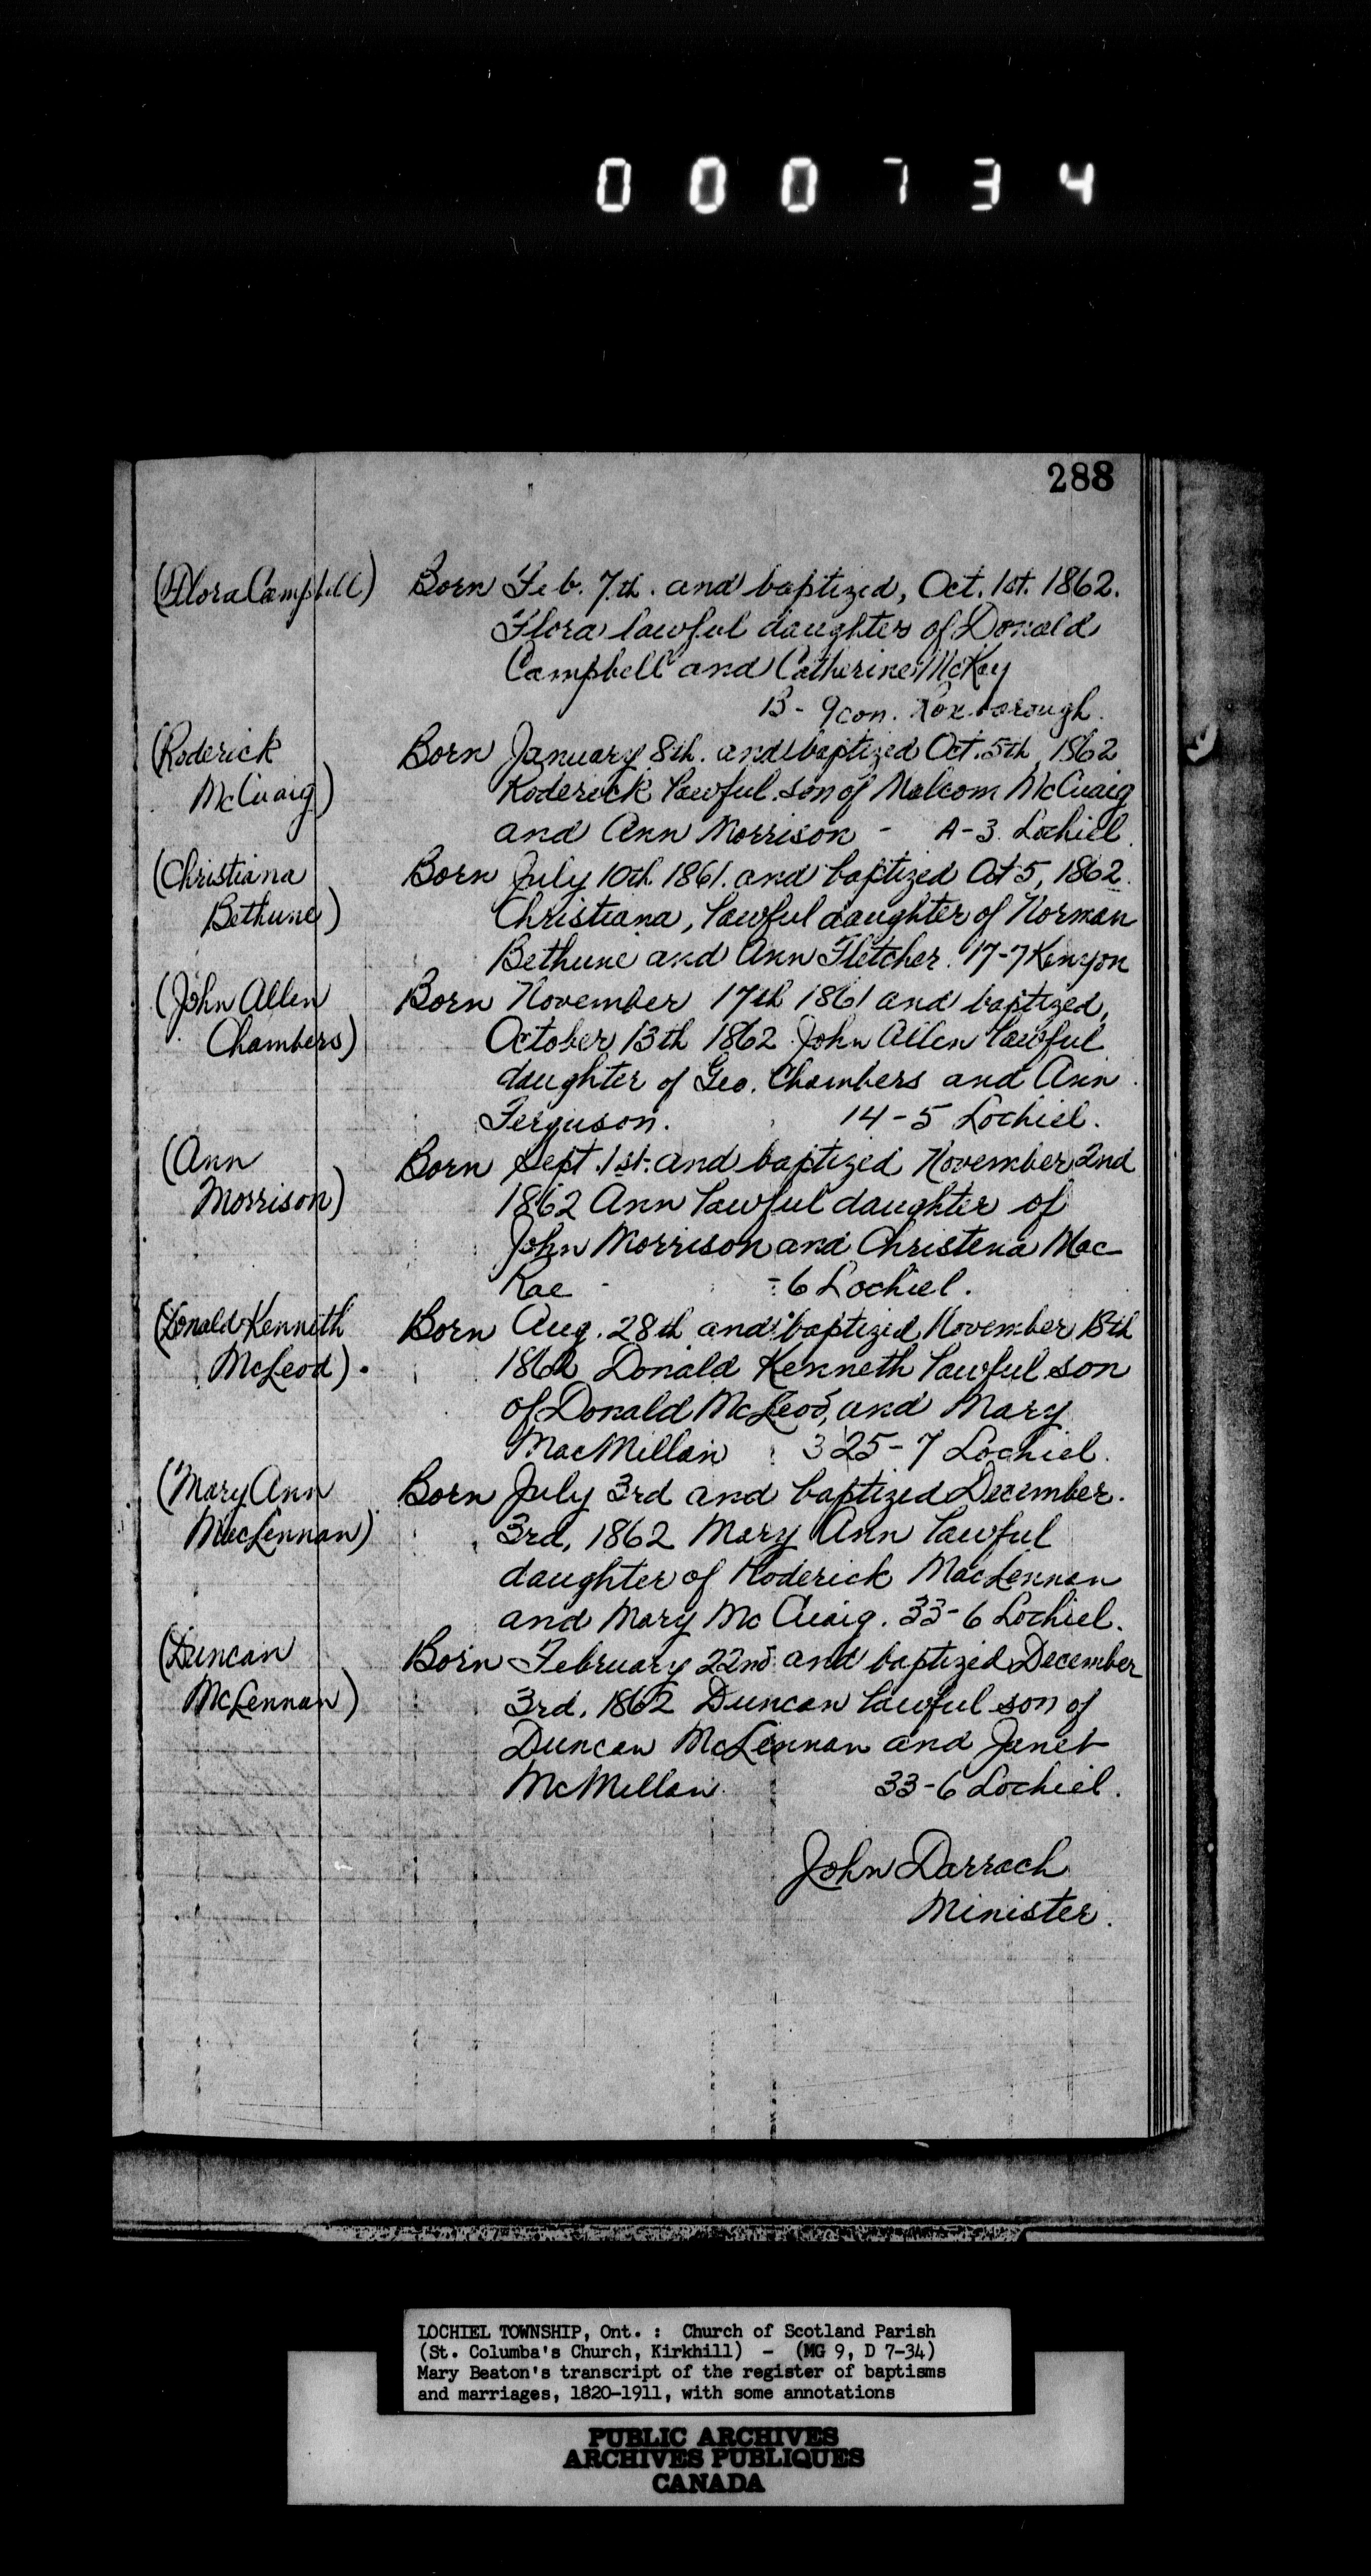 000734
288
(Flora Campbell) Born Feb. 7th. and baptized, Oct. 1st. 1862.
Flora lawful daughter of Donald
Campbell and Catherine McKay
13 - 9 con. Roxborough.
(Roderick Born January 8th. and baptized Oct. 5th 1862
McCuaig) Roderick lawful son of Malcom McCuaig
and Ann Morrison - A-3. Lochiel.
(Christiana Born July 10th 1861. and baptized Oct 5, 1862.
Bethune) Christiana, lawful daughter of Norman
Bethune and Ann Fletcher. 17-7 Kenyon
(John Allen Born November 17th 1861 and baptized,
Chambers) October 13th 1862. John Allen lawful
daughter of Geo. Chambers and Ann
Ferguson. 14-5 Lochiel.
(Ann Born Sept. 1st. and baptized November 2nd
Morrison) 1862 Ann lawful daughter of
John Morrison and Christena Mac-
Rae - -6 Lochiel.
(Donald Kenneth Born Aug. 28th and baptized November 18th
McLeod). 1862 Donald Kenneth lawful son
of Donald McLeod, and Mary
MacMillan 325-7 Lochiel.
(Mary Ann Born July 3rd and baptized December.
MacLennan) 3rd, 1862 Mary Ann lawful
daughter of Roderick MacLennan
and Mary McCuaig. 33-6 Lochiel.
(Duncan Born February 22nd and baptized December
McLennan) 3rd. 1862 Duncan lawful son of
Duncan McLennan and Janet
McMillan. 33-6 Lochiel.
John Darrach
Minister.
LOCHIEL TOWNSHIP, Ont. : Church of Scotland Parish
(St. Columba's Church, Kirkhill) - (MG 9, D 7-34)
Mary Beaton's transcript of the register of baptisms
and marriages, 1820-1911, with some annotations
PUBLIC ARCHIVES
ARCHIVES PUBLIQUES
CANADA